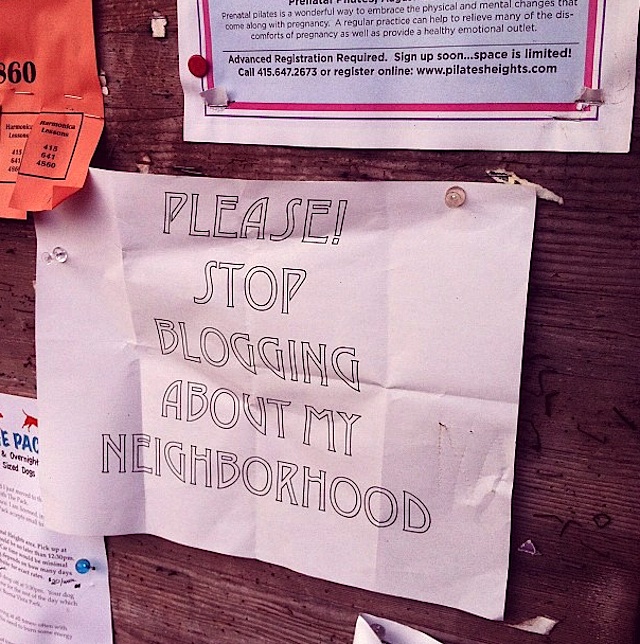 Prenatal Pilates, Aug
Prenatal pilates is a wonderful way to embrace the physical and mental changes that
come along with pregnancy. A regular practice can help to relieve many of the dis-
comforts of pregnancy as well as provide a healthy emotional outlet.
Advanced Registration Required. Sign up soon...space is limited!
Call 415.647.2673 or register online: www.pilatesheights.com
860
Harmonica
Lessons
415
641
Harmonica
Lessons
415
641
4860
PLEASE!
STOP
BLOGGING
ABOUT MY
NEIGHBORHOOD
E PAC
& Overnight
Sized Dogs